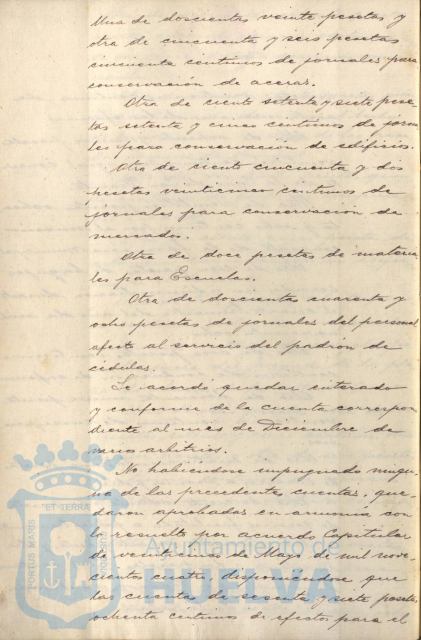 Una de doscientas veinte pesetas y
otra de cincuenta y seis pesetas
cincuenta centimos de jornales para
conservación de aceras.
Otra de ciento setenta y siete pese
tas setenta y cinco centimos de jorna
les para conservación de edificios.
Otra de ciento cincuenta y dos
pesetas veinticinco centimos de
jornales para conservación de
mercados.
Otra de doce pesetas de materia
les para Escuelas.
Otra de doscientas cuarenta y
ocho pesetas de jornales del personal
afecto al servicio del padrón de
cédulas.
Se acordó quedar enterado
y conforme de la cuenta correspon
diente al mes de Diciembre de
varios arbitrios.
No habiendose impugnado ningu-
na de las precedente cuentas, que-
daron aprobadas en armonia con
lo resuelto por acuerdo Capitular
de veinte de Mayo de mil nove-
cientos cuatro, disponiendose que
las cuenta de sesenta y siete pesetas
ochenta centimos de efectos para el
PORTUS MARIS
ET TERRÆ
CUSTODIA
Ayuntamiento de
HUELVA